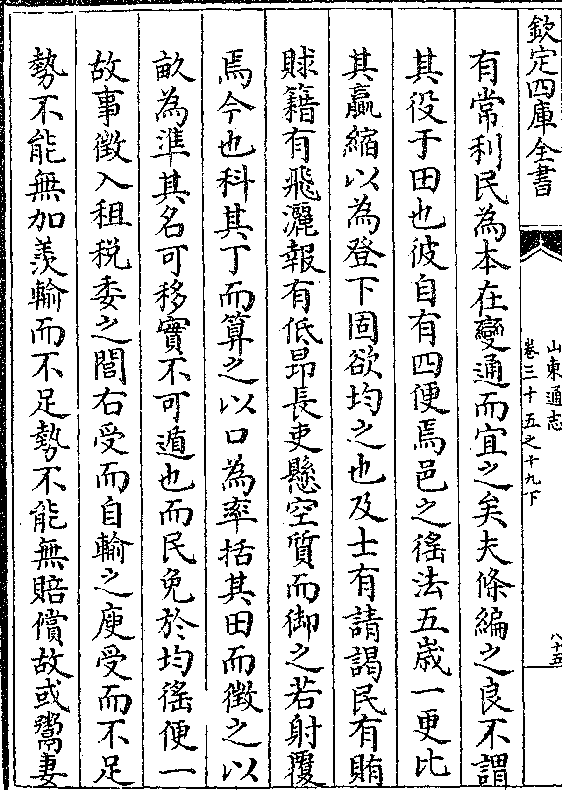 欽定四庫全書
山東通志
卷三十五之十九下
八十五
有常利民為本在變通而宜之矣夫條編之良不謂
其役于田也彼自有四便焉邑之徭法五歲一更比
其贏縮以為登下固欲均之也及士有請謁民有賄
賕籍有飛灑報有低昂長吏懸空質而御之若射覆
焉今也科其丁而算之以口為率括其田而徵之以
畝為準其名可移實不可遁也而民免於均徭便一
故事徵入租稅委之閭右受而自輸之庾受而不足
勢不能無加羨輸而不足勢不能無賠償故或鬻妻